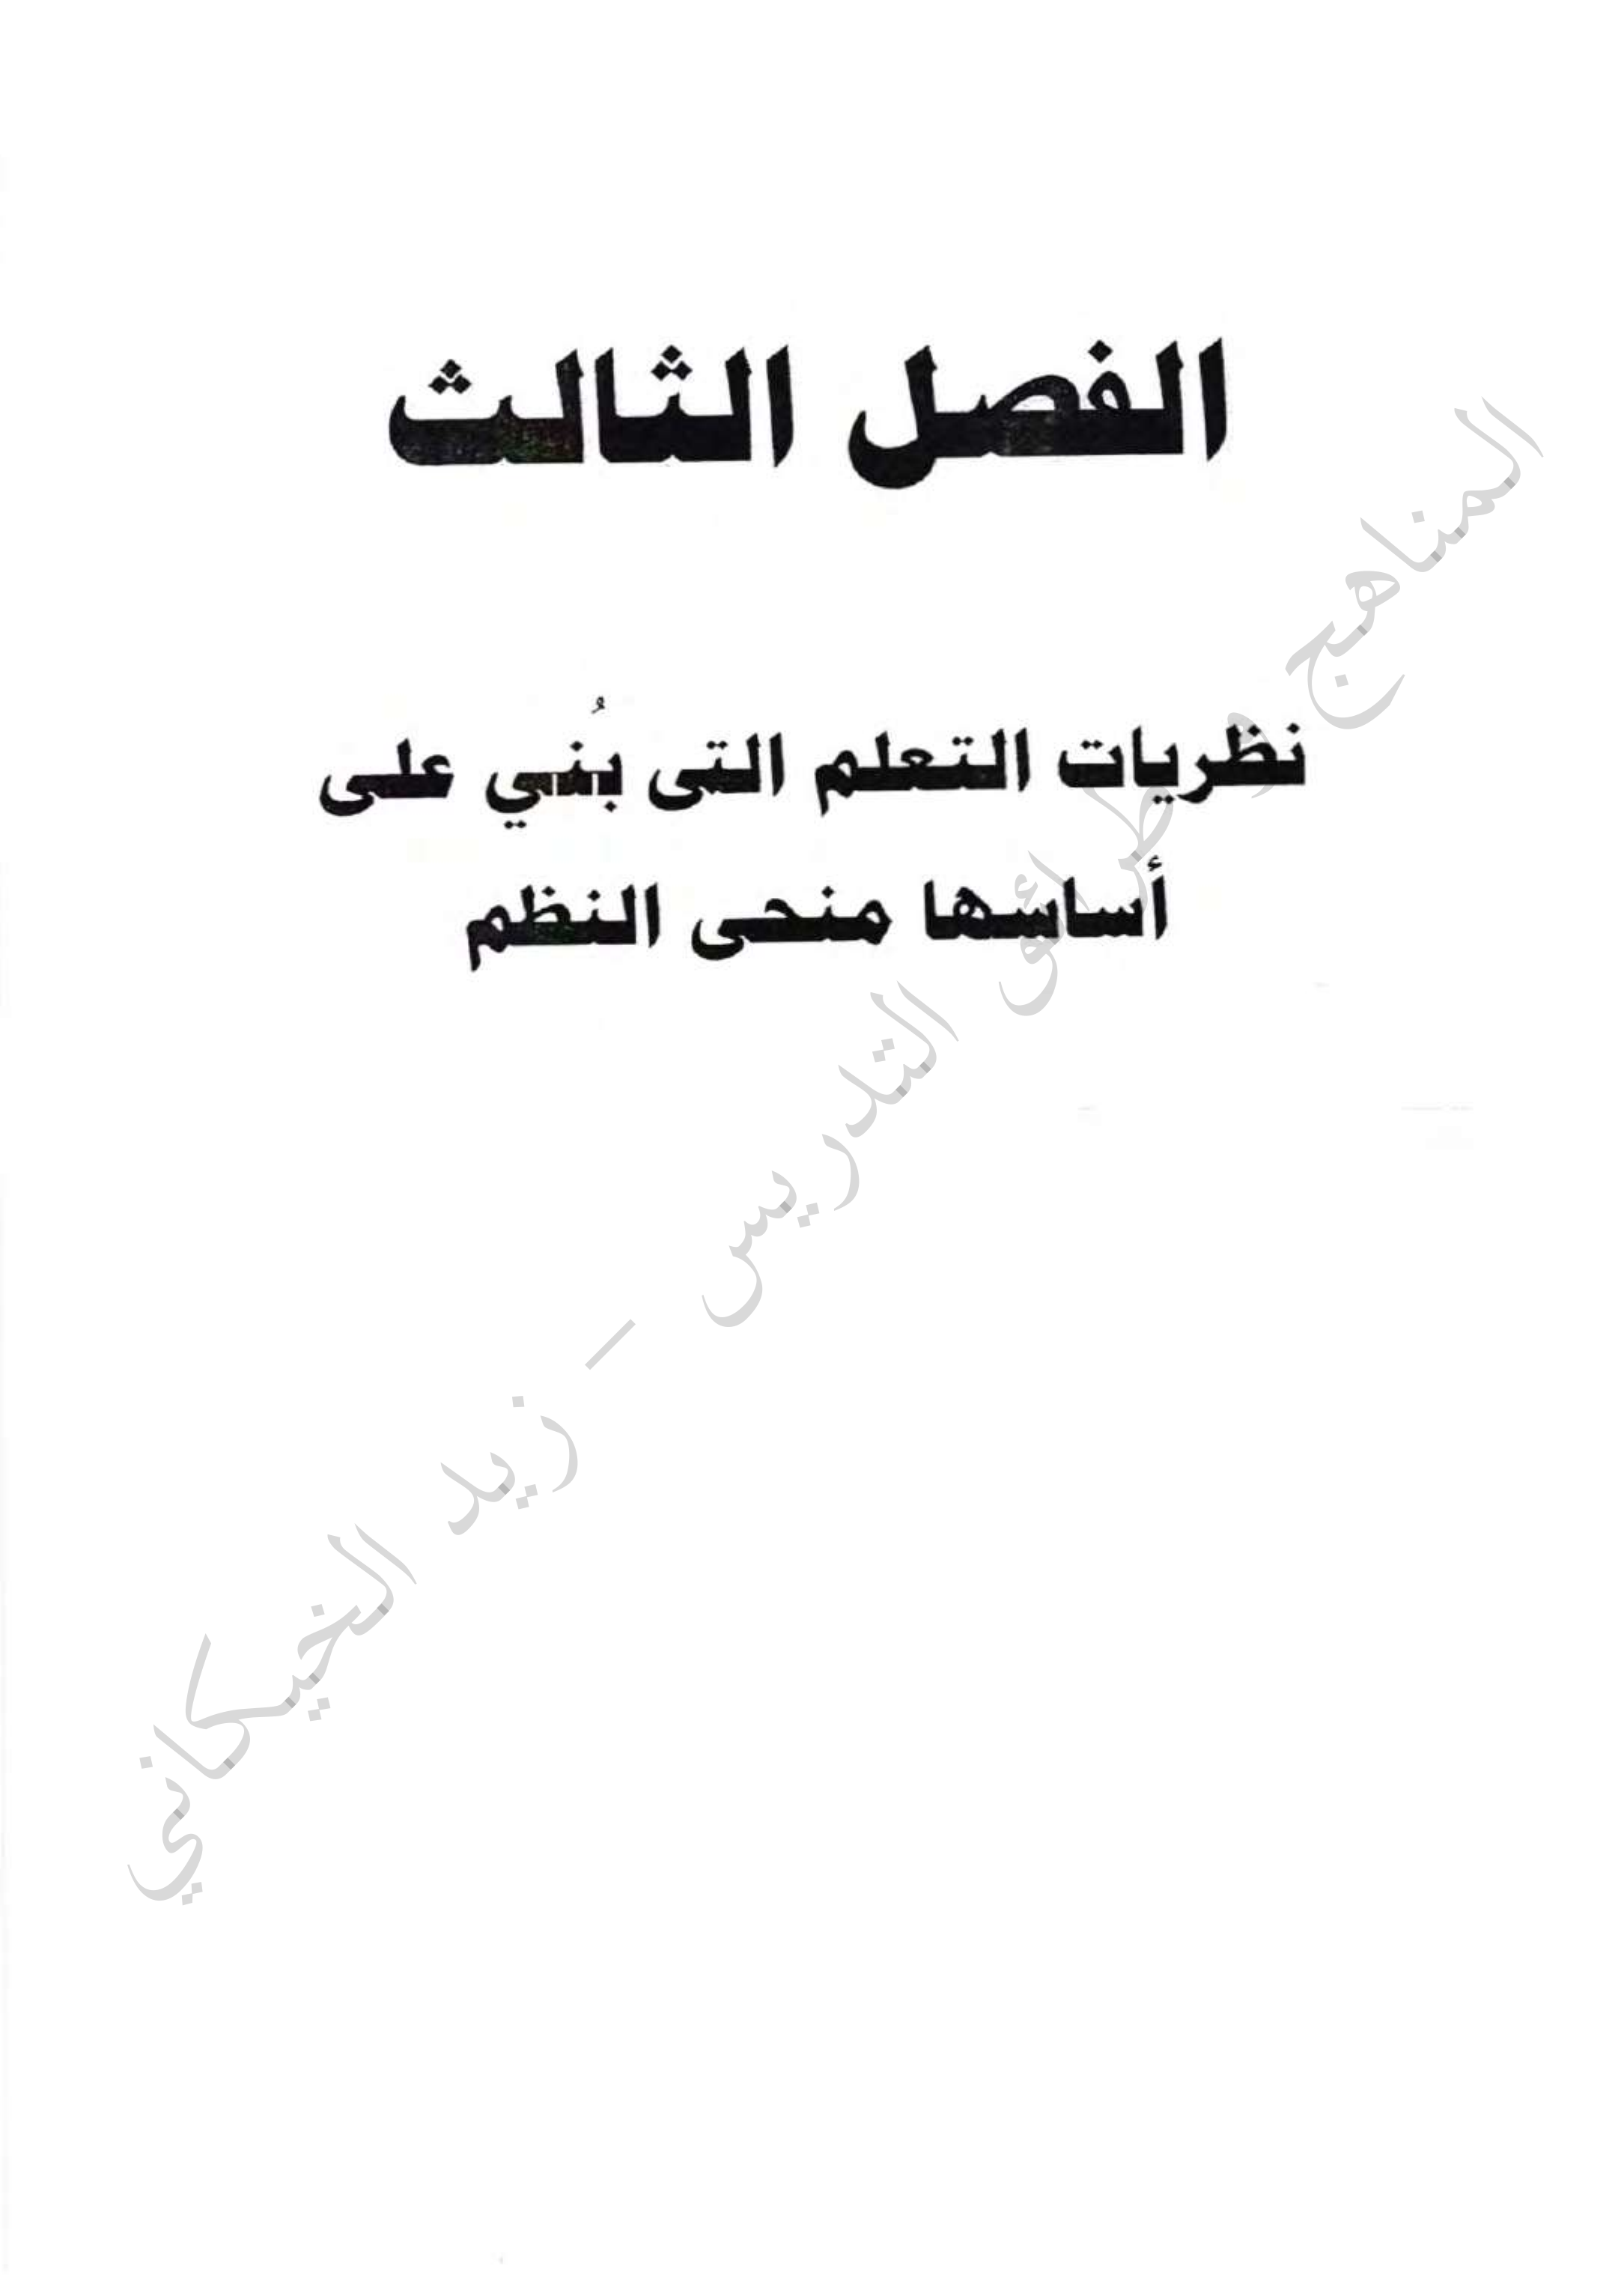 الفصل الثالث
نظريات التعلم التى بُني على
أساسها منحى النظم
المناهج وطرائق التدريس – زيد الخيكاني